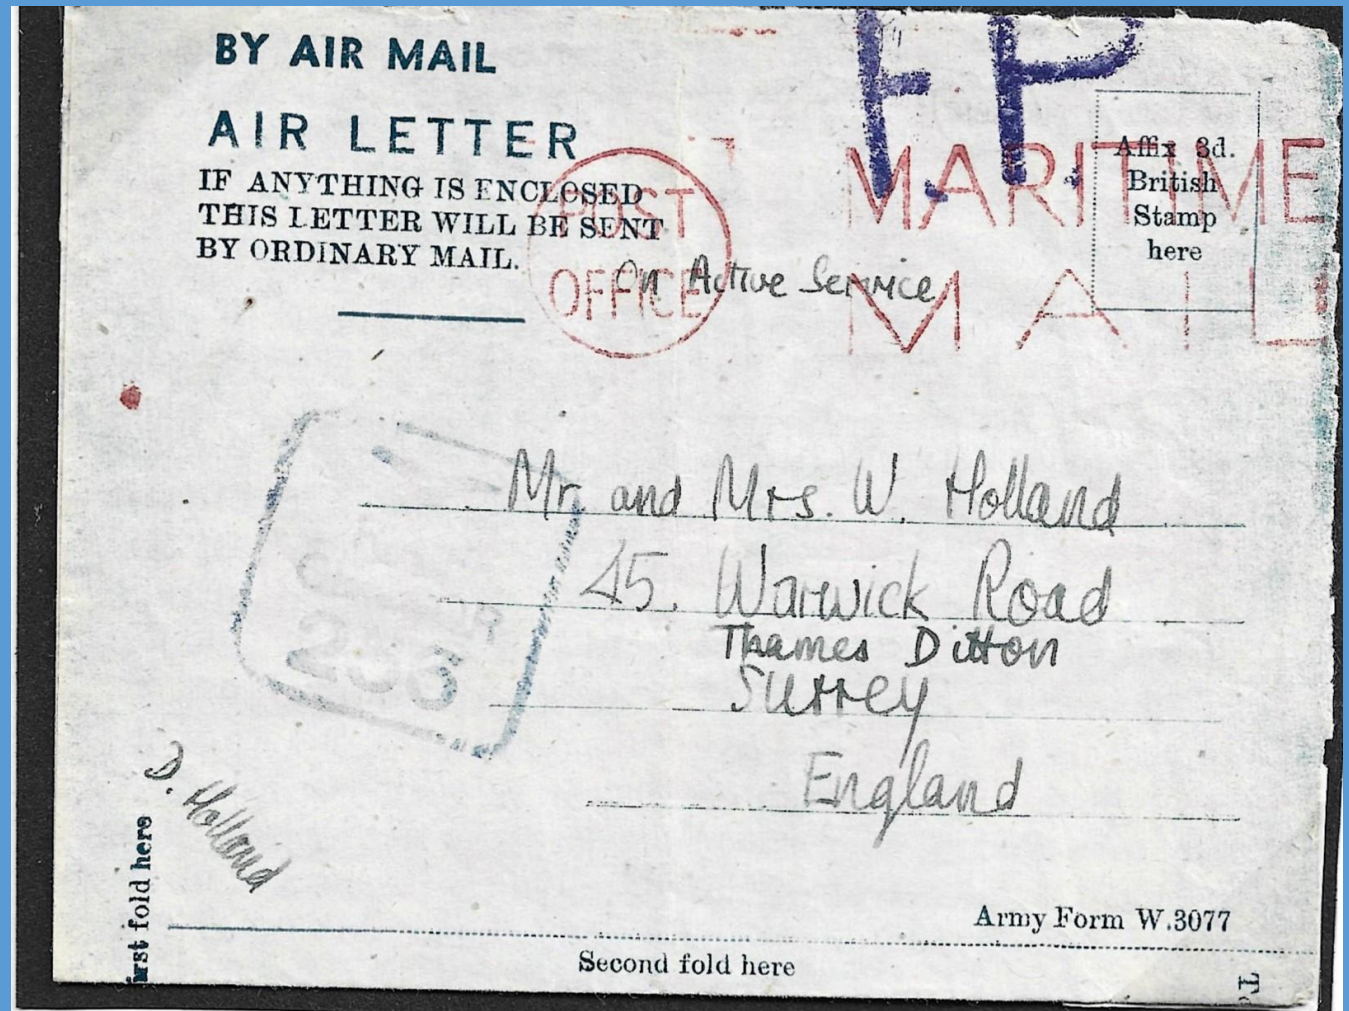 BY AIR MAIL
F.P.
AIR LETTER
IF ANYTHING IS ENCLOSED
THIS LETTER WILL BE SENT
BY ORDINARY MAIL.
POST
OFFICE
MARITIME
MAIL
Affix 3d.
British
Stamp
here
On Active Service
Mr and Mrs. W. Holland
45. Warwick Road
Thames Ditton
Surrey
England
D. Holland
rst fold here
Army Form W.3077
Second fold here